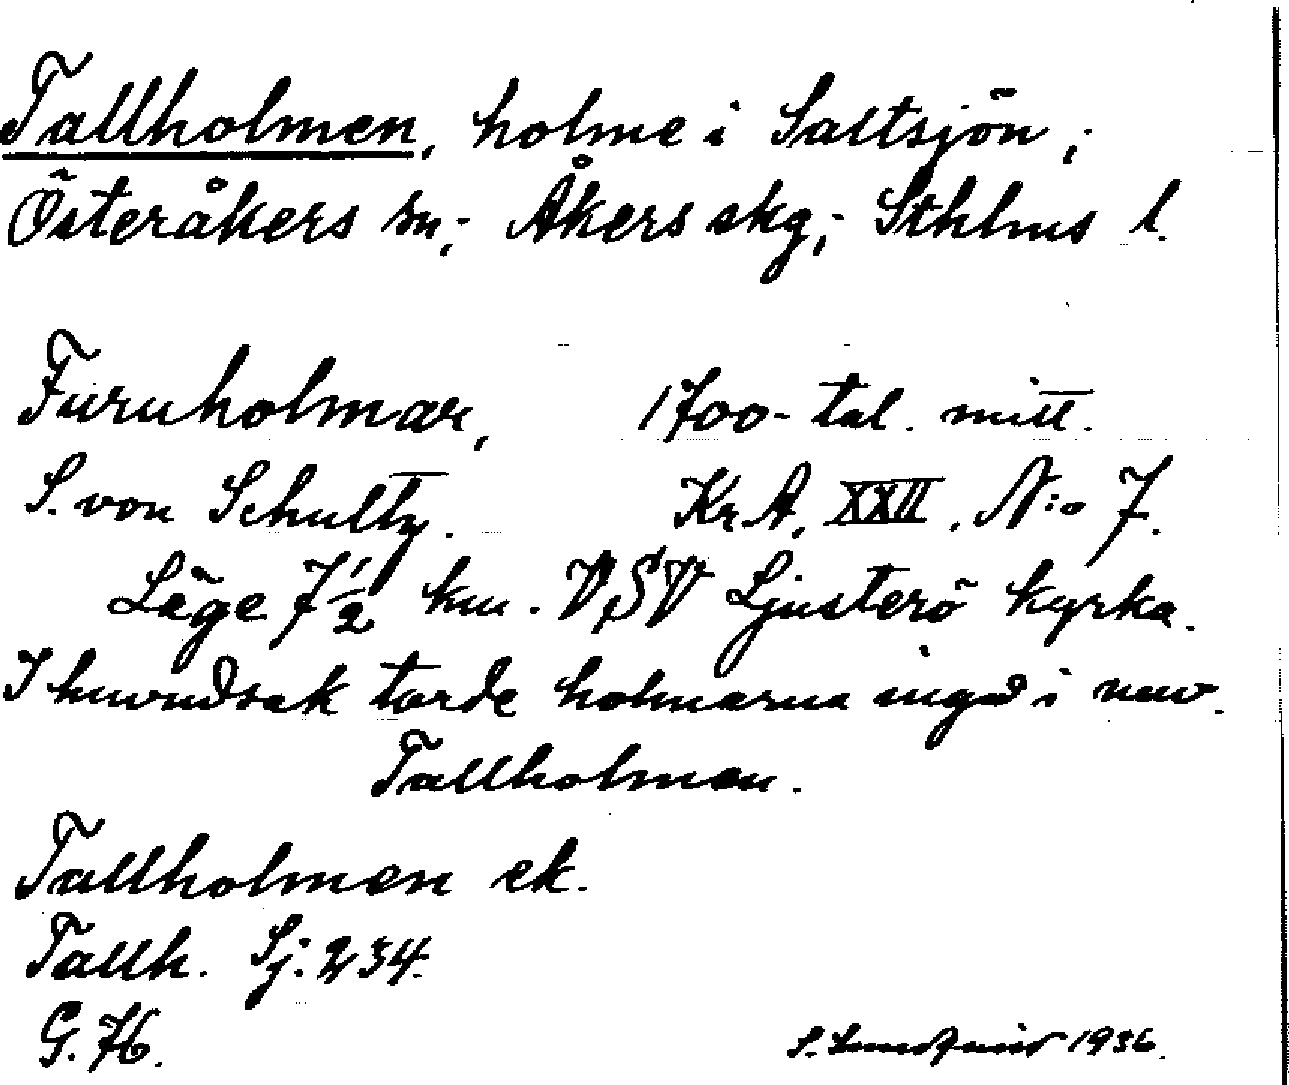 Tallholmen, holme i Saltsjön,;
Österåkers sn,; Åkers skg,; Sthlms l.
Furuholmar, 1700-tal. mitt.
S. von Schultz. Kr.A, XXII, N:o 7.
Läge 7 1/2 km. VSV Ljusterö kyrka.
I huvudsak torde holmarna ingå i nuv.
Tallholmen.
Tallholmen ek.
Tallh. Sj. 234.
G. 76.
S. Lundquist 1936.